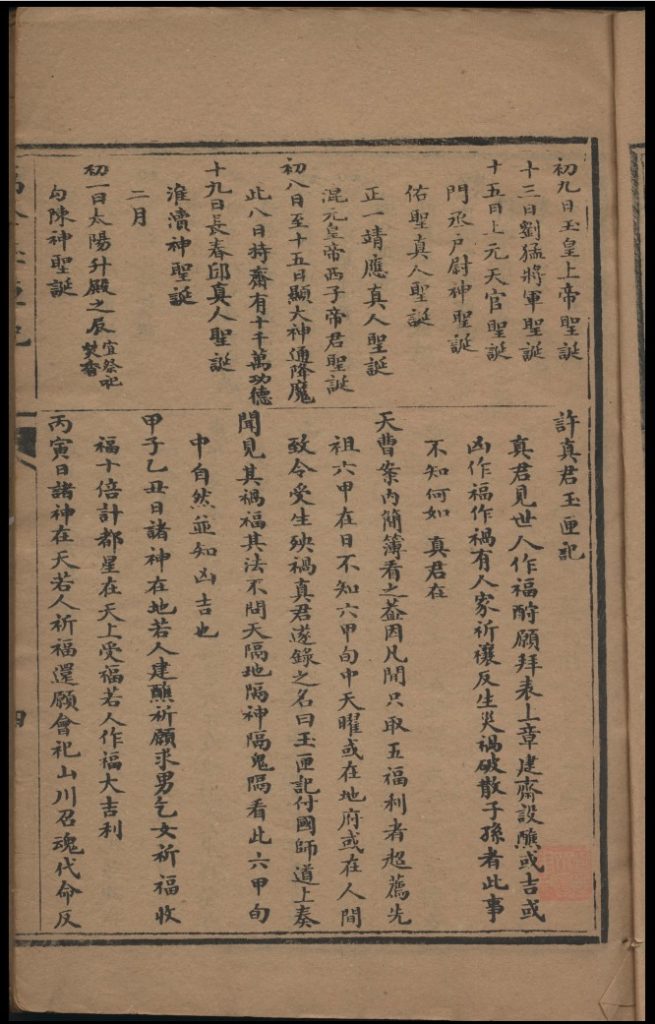 初九日玉皇上帝聖誕
十三日劉猛將軍聖誕
十五日上元天官聖誕
門丞户尉神聖誕
佑聖真人聖誕
正一靖應真人聖誕
混元皇帝西子帝君聖誕
初八日至十五日顯大神通降魔
此八日持齋有十千萬功德
十九日長春邱真人聖誕
淮瀆神聖誕
二月
初一日太陽升殿之辰宜祭祀焚香
勾陳神聖誕
許真君玉匣記
真君見世人作福酧願拜表上章建齋設醮或吉或
凶作福作禍有人家祈禳反生災禍破散子孫者此事
不知何如 真君在
天曹案內簡簿看之葢因凡間只取五福利者超薦先
祖六甲在日不知六甲旬中天曜或在地府或在人間
致令受生殃禍真君遂錄之名曰玉匣記付國師道上奏
聞見其禍福其法不問天隔地隔神隔鬼隔看此六甲旬
中自然並知凶吉也
甲子乙丑日諸神在地若人建醮祈願求男乞女祈福收
福十倍計都星在天上受福若人作福大吉利
丙寅日諸神在天若人祈福還願會祀山川召魂代命反
四